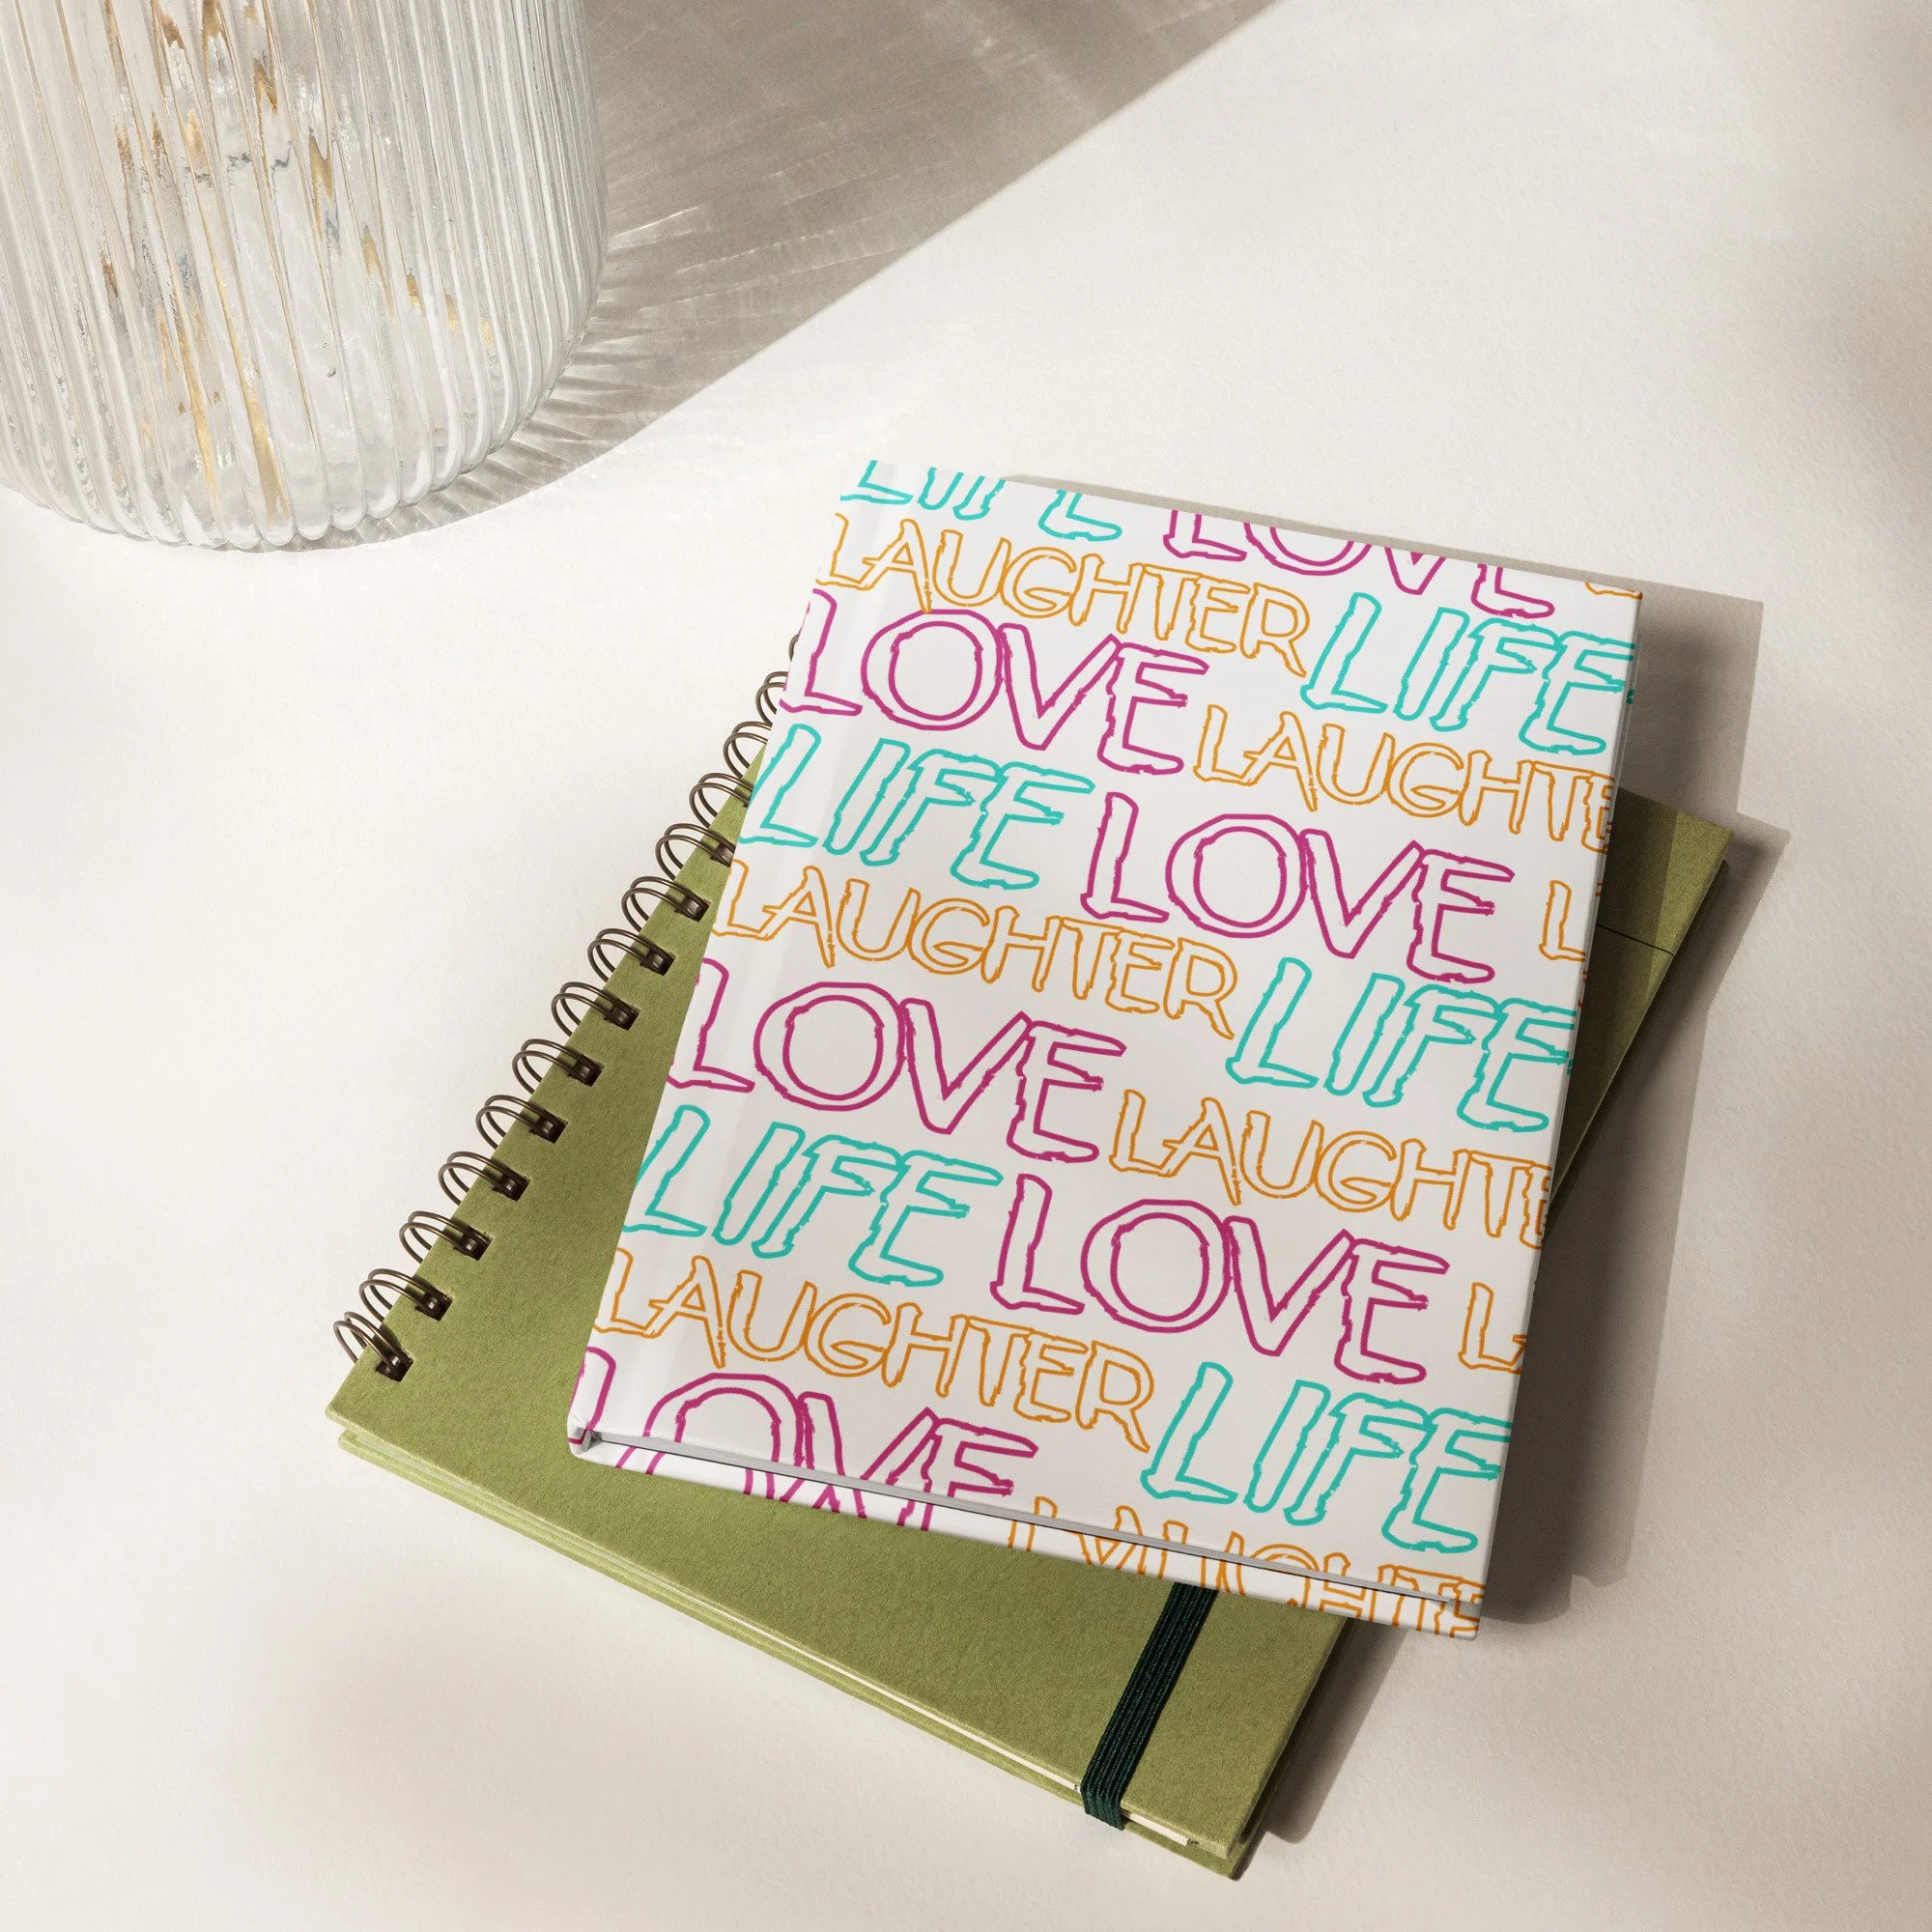 LIFE LOVE
LAUGHTER LIFE
LOVE LAUGHTE
LIFE LOVE L
LAUGHTER LIFE
LOVE LAUGHTE
LIFE LOVE LA
LAUGHTER LIFE
LOVE LAUGHTE